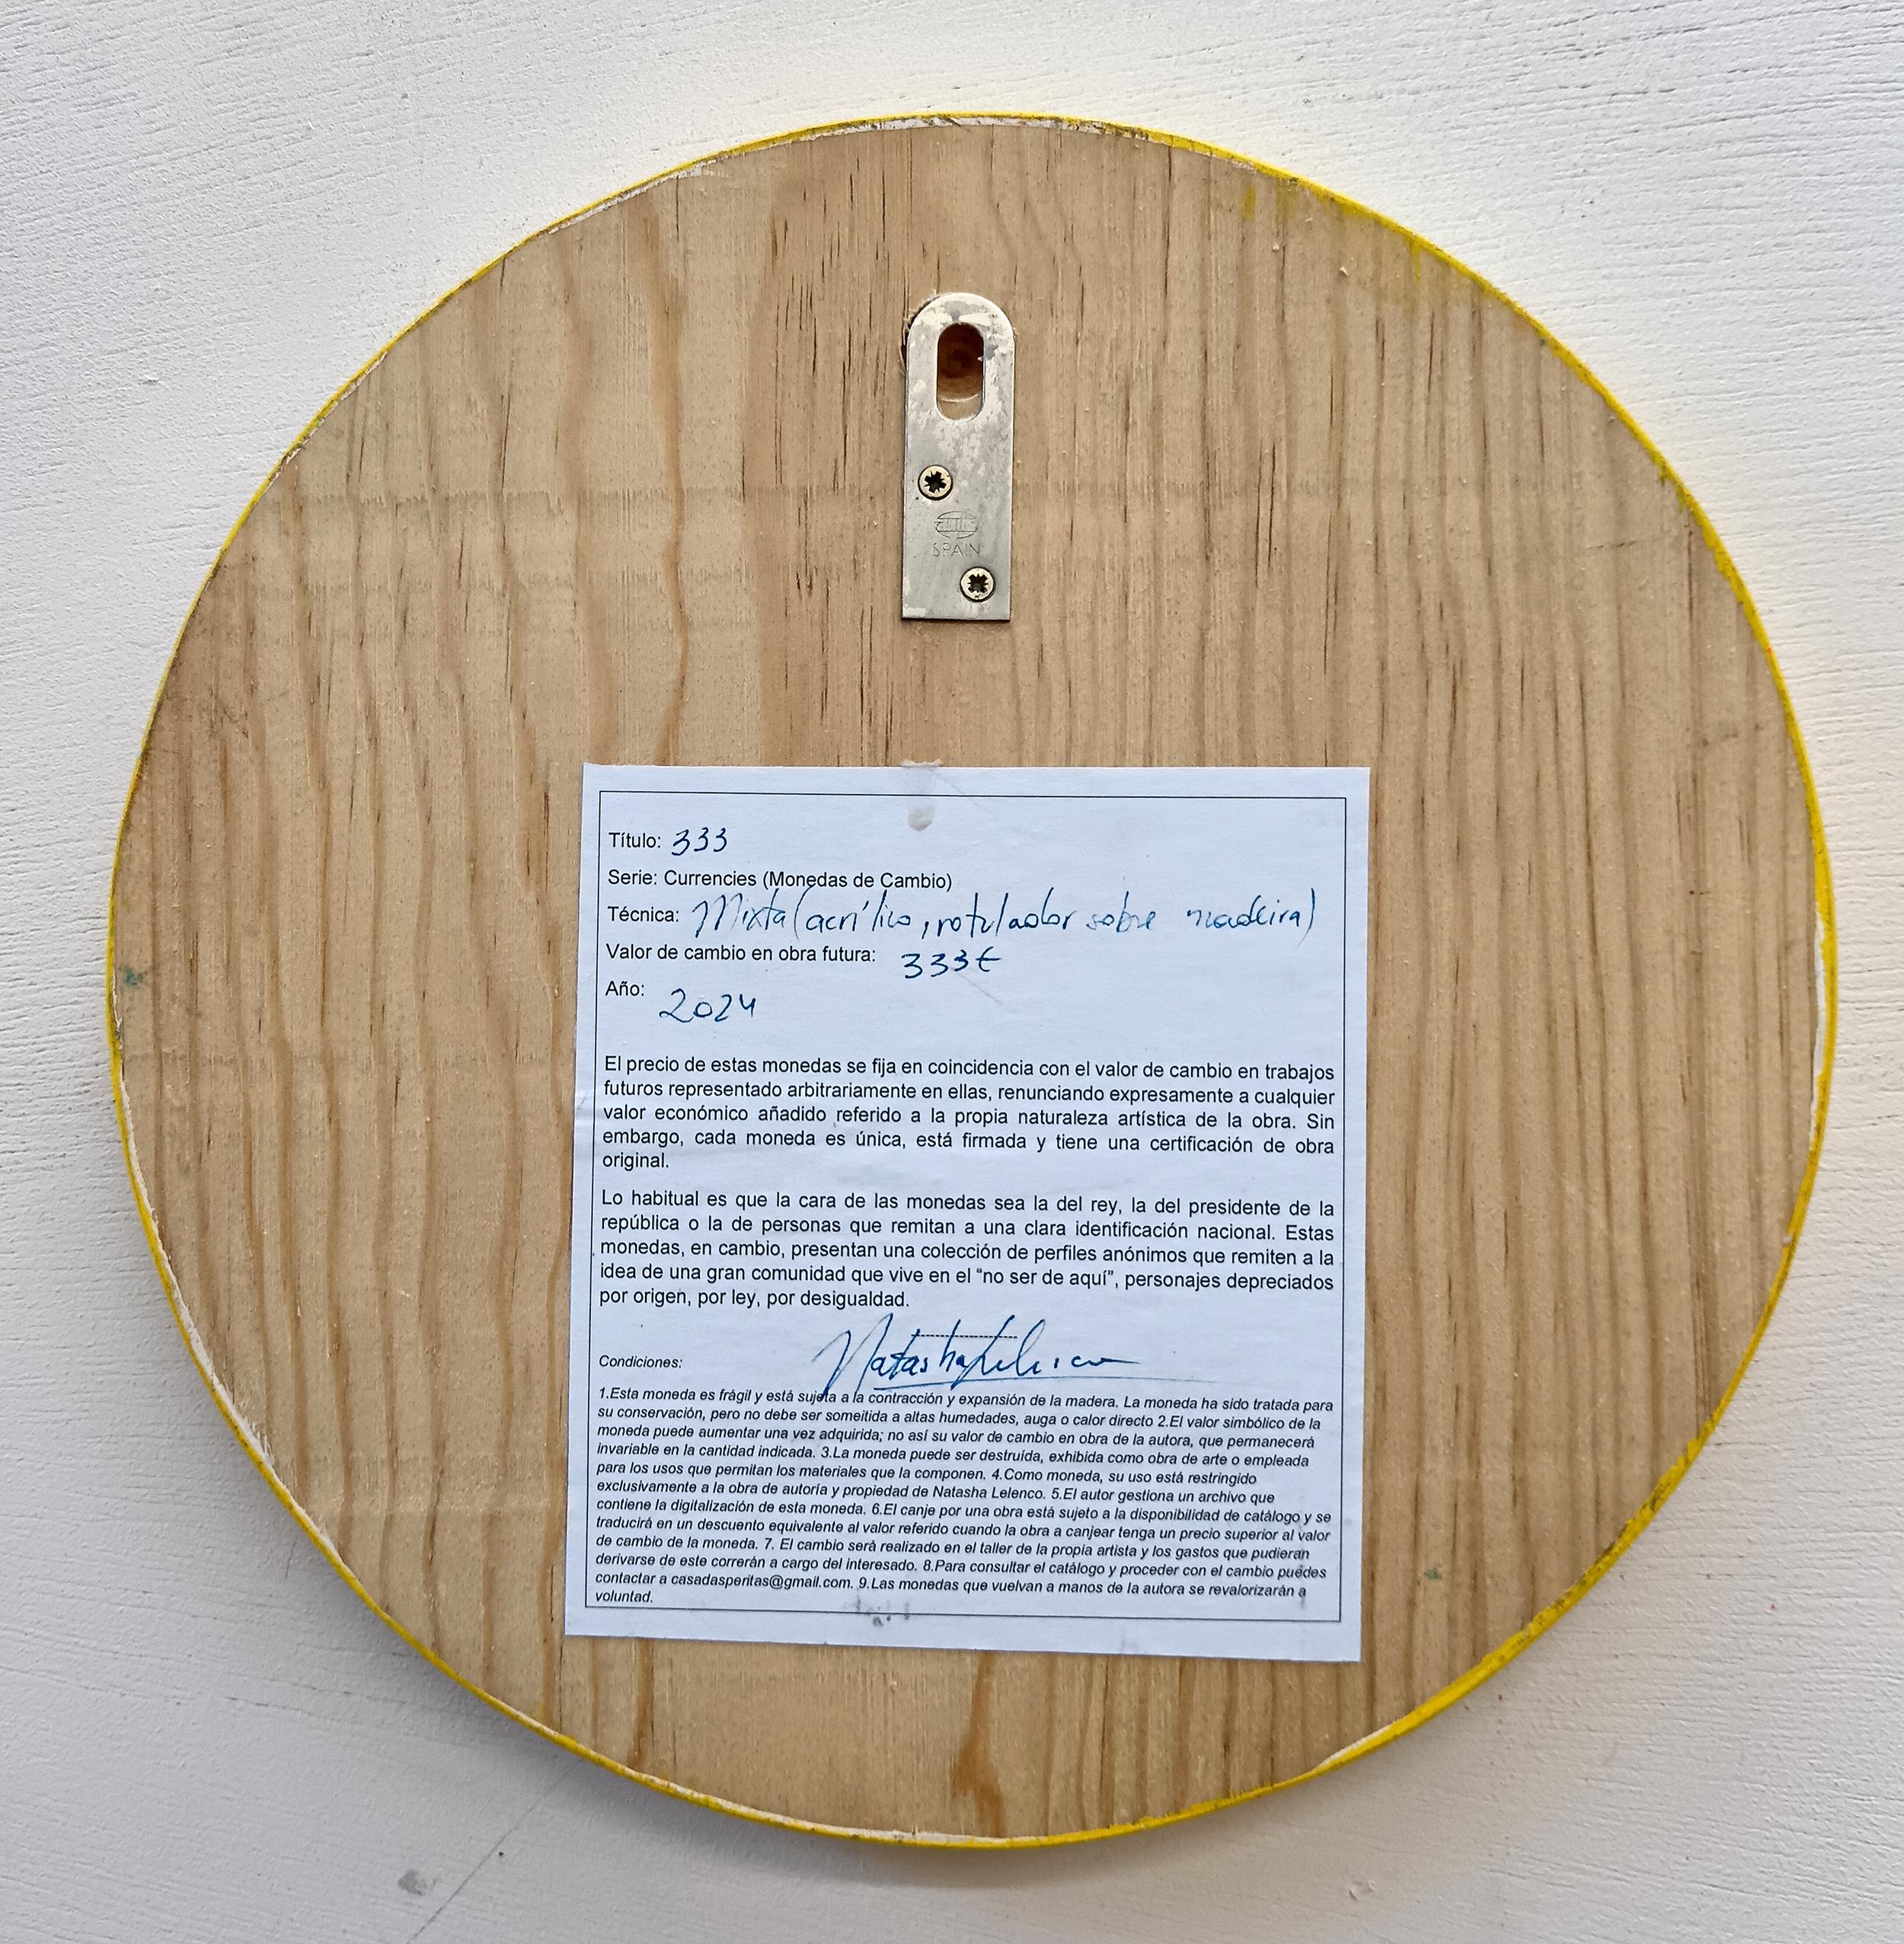 SPAIN
Título: 333
Serie: Currencies (Monedas de Cambio)
Técnica: Mixta (acrílico, rotulador sobre madeira)
Valor de cambio en obra futura: 333€
Año: 2024
El precio de estas monedas se fija en coincidencia con el valor de cambio en trabajos
futuros representado arbitrariamente en ellas, renunciando expresamente a cualquier
valor económico añadido referido a la propia naturaleza artística de la obra. Sin
embargo, cada moneda es única, está firmada y tiene una certificación de obra
original.
Lo habitual es que la cara de las monedas sea la del rey, la del presidente de la
república o la de personas que remitan a una clara identificación nacional. Estas
monedas, en cambio, presentan una colección de perfiles anónimos que remiten a la
idea de una gran comunidad que vive en el “no ser de aquí”, personajes depreciados
por origen, por ley, por desigualdad.
Natasha Lelenco
Condiciones:
1.Esta moneda es frágil y está sujeta a la contracción y expansión de la madera. La moneda ha sido tratada para
su conservación, pero no debe ser someitida a altas humedades, auga o calor directo 2.El valor simbólico de la
moneda puede aumentar una vez adquirida; no así su valor de cambio en obra de la autora, que permanecerá
invariable en la cantidad indicada. 3.La moneda puede ser destruida, exhibida como obra de arte o empleada
para los usos que permitan los materiales que la componen. 4.Como moneda, su uso está restringido
exclusivamente a la obra de autoría y propiedad de Natasha Lelenco. 5.El autor gestiona un archivo que
contiene la digitalización de esta moneda. 6.El canje por una obra está sujeto a la disponibilidad de catálogo y se
traducirá en un descuento equivalente al valor referido cuando la obra a canjear tenga un precio superior al valor
de cambio de la moneda. 7. El cambio será realizado en el taller de la propia artista y los gastos que pudieran
derivarse de este correrán a cargo del interesado. 8.Para consultar el catálogo y proceder con el cambio puedes
contactar a casadasperitas@gmail.com. 9.Las monedas que vuelvan a manos de la autora se revalorizarán a
voluntad.